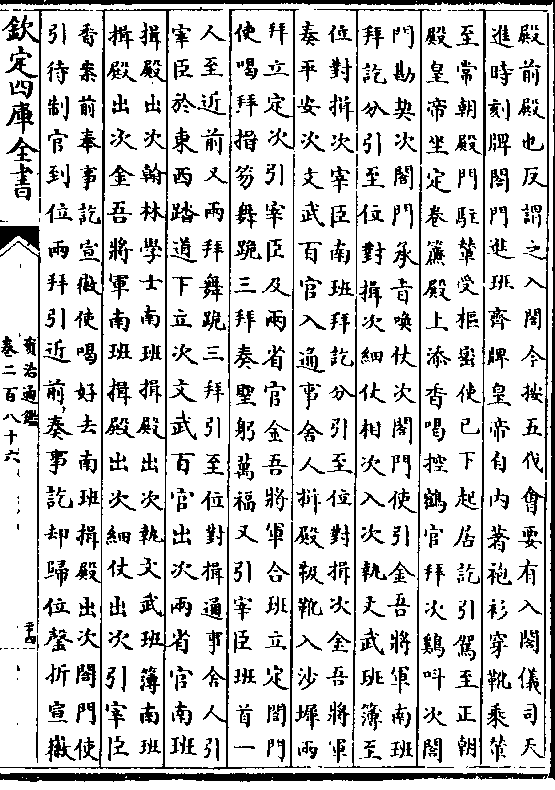 殿前殿也反謂之入閤今按五代會要有入閤儀司天
進時刻牌閤門進班齊牌皇帝自内著袍衫穿靴乘輦
至常朝殿門駐輦受樞密使已下起居訖引駕至正朝
殿皇帝坐定卷簾殿上添香喝控鶴官拜次鷄叫次閤
門勘契次閤門承旨喚仗次閤門使引金吾將軍南班
拜訖分引至位對揖次細仗相次入次執文武班簿至
位對揖次宰臣南班拜訖分引至位對揖次金吾將軍
奏平安次文武百官入通事舍人揖殿靸靴入沙墀兩
拜立定次引宰臣及兩省官金吾將軍合班立定閤門
使喝拜搢笏舞跪三拜奏聖躬萬福又引宰臣班首一
人至近前又兩拜舞跪三拜引至位對揖通事舍人引
宰臣於東西踏道下立次文武百官出次兩省官南班
揖殿出次翰林學士南班揖殿出次執文武班簿南班
揖殿出次金吾將軍南班揖殿出次細仗出次引宰臣
香案前奉事訖宣徽使喝好去南班揖殿出次閤門使
引待制官到位兩拜引近前奏事訖却歸位磬折宣徽
欽定四庫全書
資治通鑑
卷二百八十六